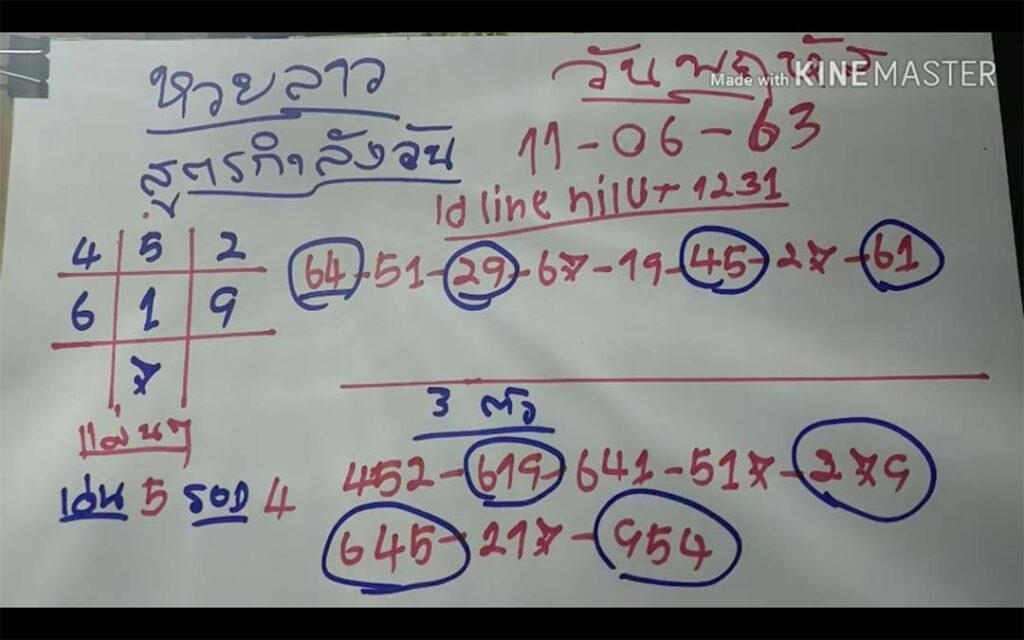 หวยลาว
สูตรกำลังวัน
วันพฤหัส
Made with KINEMASTER
11-06-63
Id line nilut 1231
4 5 2
6 1 9
7
64-51-29-67-19-45-27-61
แม่นๆ
เด่น 5 รอง 4
3 ตัว
452-619-641-517-279
645-217-954